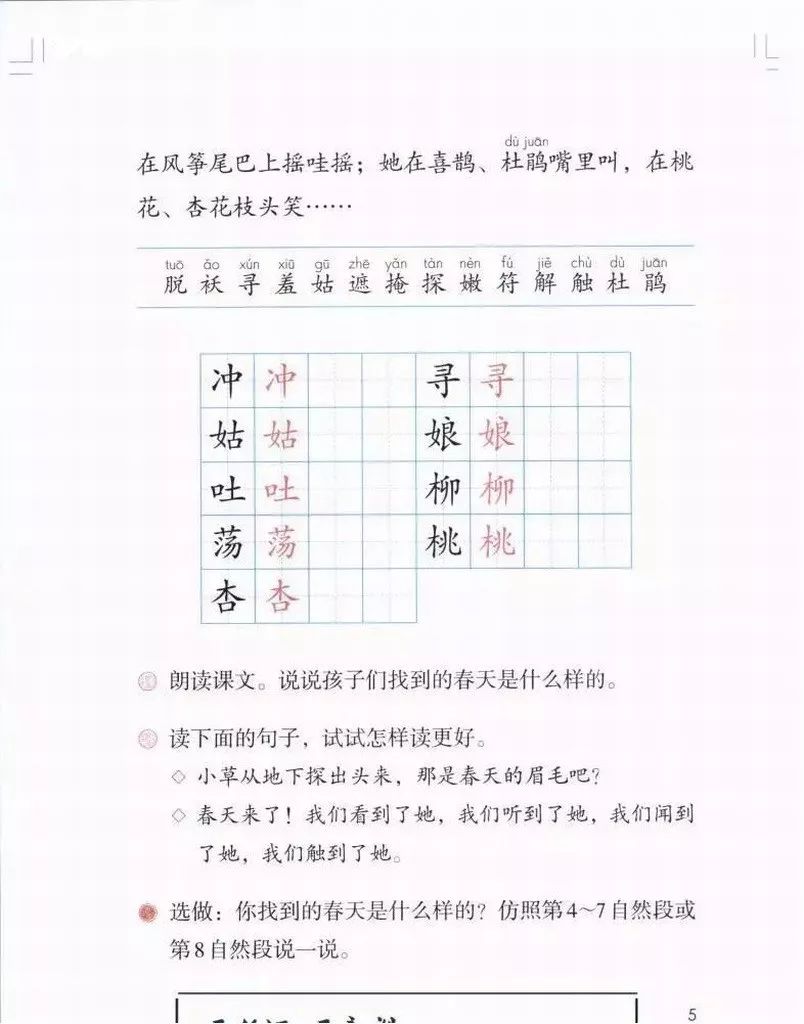 dù juān
在风筝尾巴上摇哇摇；她在喜鹊、杜鹃嘴里叫，在桃
花、杏花枝头笑……
tuō ǎo xún xiū gū zhē yǎn tàn nèn fú jiě chù dù juān
脱 袄 寻 羞 姑 遮 掩 探 嫩 符 解 触 杜 鹃
冲 冲 寻 寻
姑 姑 娘 娘
吐 吐 柳 柳
荡 荡 桃 桃
杏 杏
朗读课文。说说孩子们找到的春天是什么样的。
读下面的句子，试试怎样读更好。
◇ 小草从地下探出头来，那是春天的眉毛吧？
◇ 春天来了！我们看到了她，我们听到了她，我们闻到
了她，我们触到了她。
选做：你找到的春天是什么样的？仿照第4～7自然段或
第8自然段说一说。
5